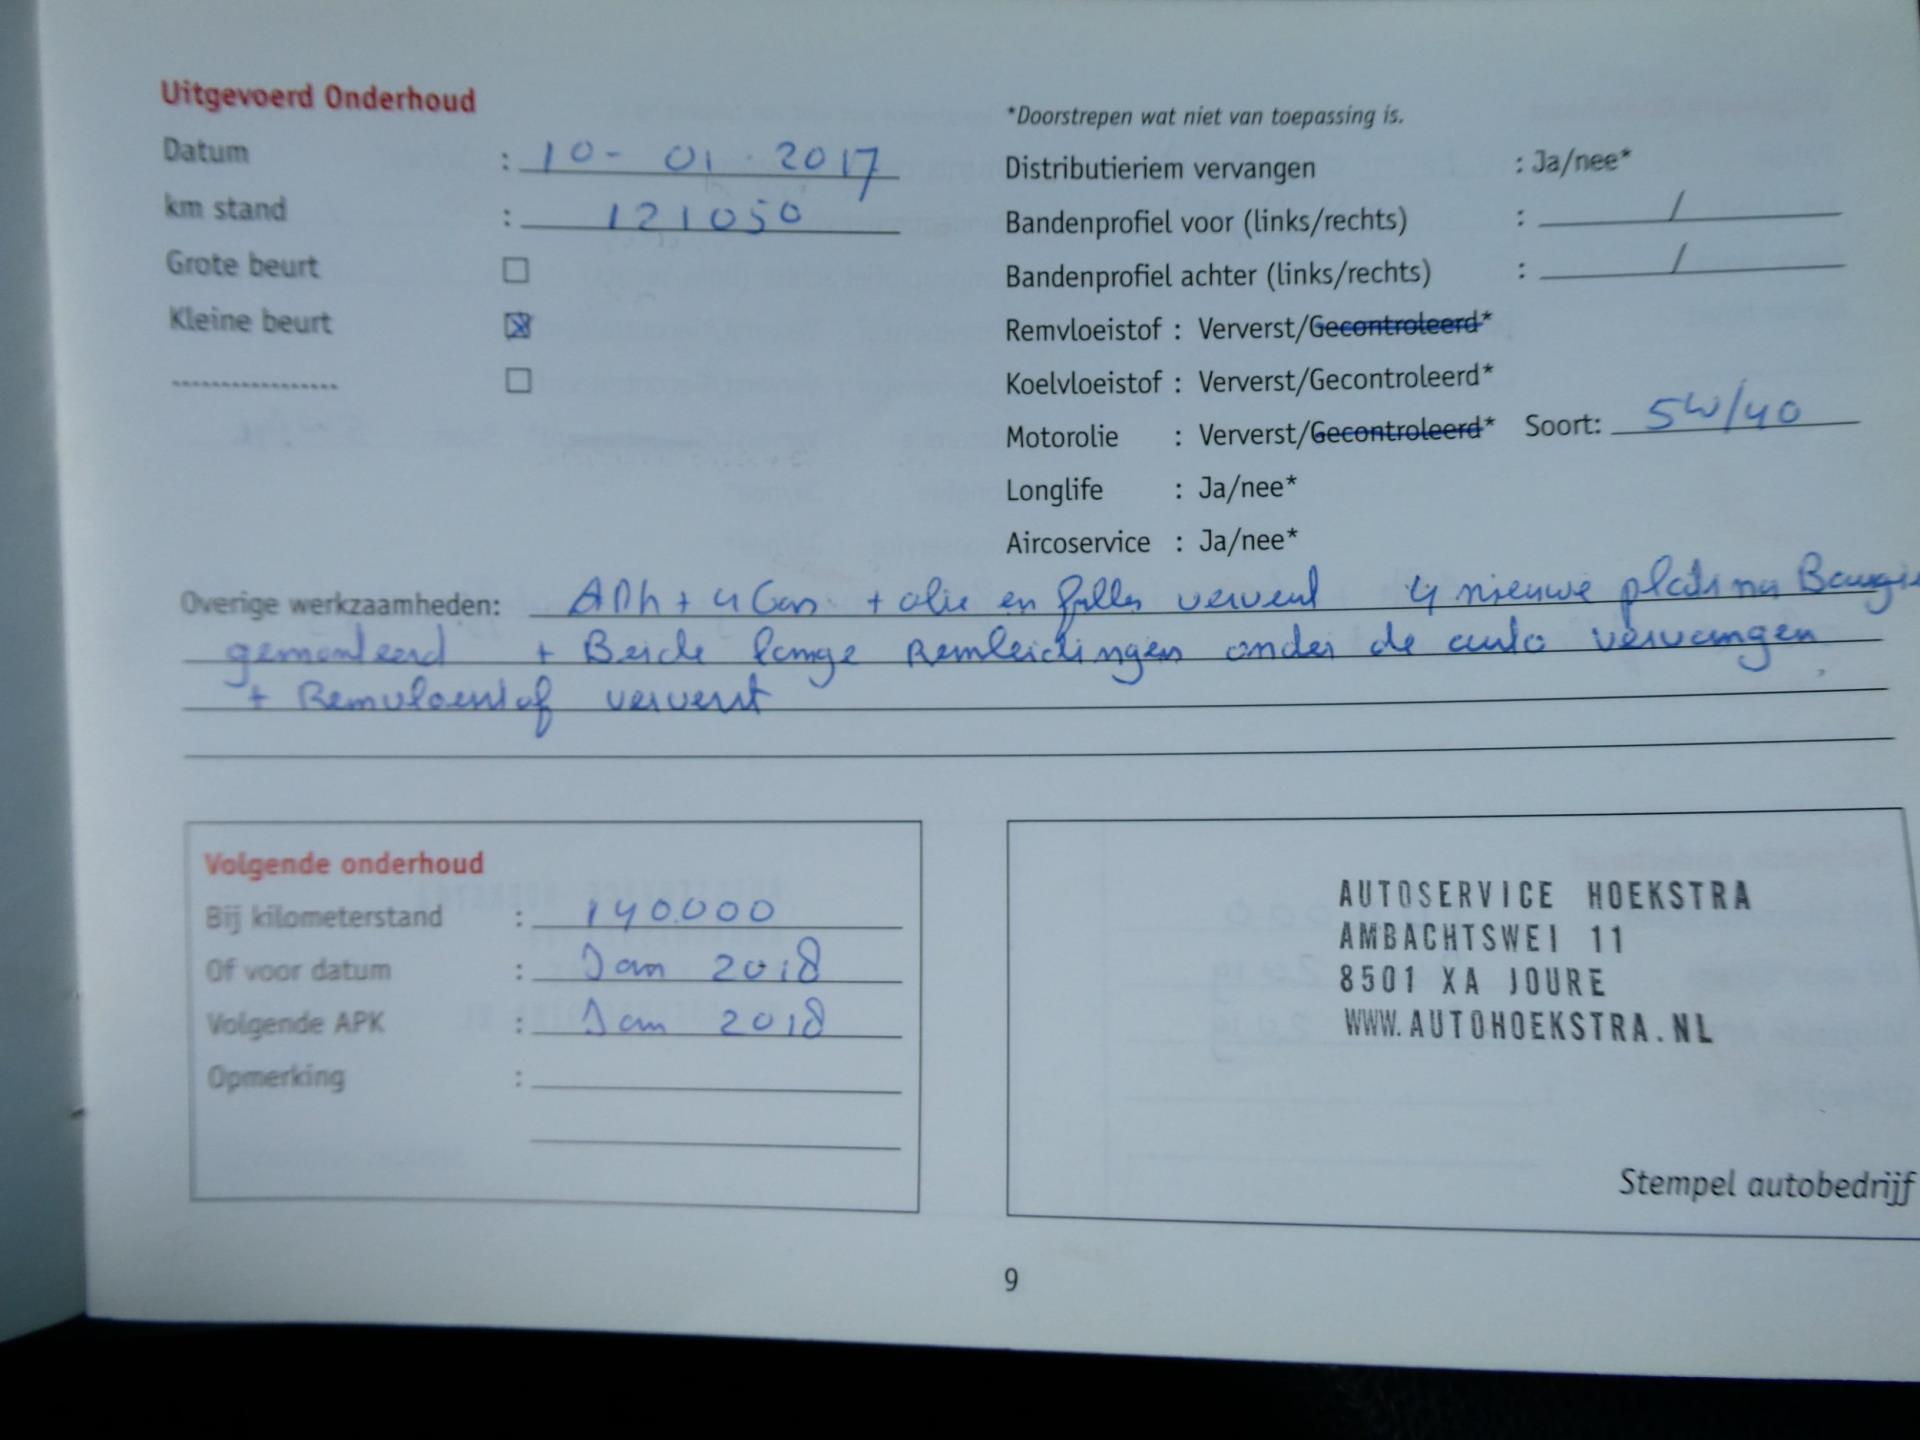 Uitgevoerd Onderhoud
Datum : 10-01-2017
km stand : 121050
Grote beurt
Kleine beurt
..................
*Doorstrepen wat niet van toepassing is.
Distributieriem vervangen : Ja/nee*
Bandenprofiel voor (links/rechts) : /
Bandenprofiel achter (links/rechts) : /
Remvloeistof : Ververst/Gecontroleerd*
Koelvloeistof : Ververst/Gecontroleerd*
Motorolie : Ververst/Gecontroleerd* Soort: 5W/40
Longlife : Ja/nee*
Aircoservice : Ja/nee*
Overige werkzaamheden: + 4 Gas + olie en filter ververst 4 nieuwe platina Bougie
gemonteerd + Beide lange Remleidingen onder de auto vervangen
+ Remvloeistof ververst
Volgende onderhoud
Bij kilometerstand : 140.000
Of voor datum : Jan 2018
Volgende APK : Jan 2018
Opmerking :
AUTOSERVICE HOEKSTRA
AMBACHTSWEI 11
8501 XA JOURE
WWW.AUTOHOEKSTRA.NL
Stempel autobedrijf
9